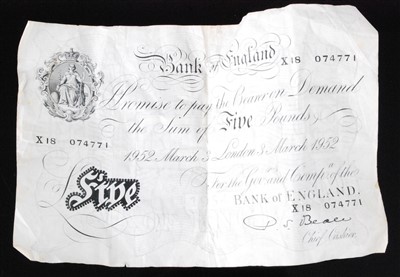 Bank of England X18 074771
I Promise to pay the Bearer on Demand
the Sum of Five Pounds,
X18 074771
1952 March 3 London 3 March 1952
For the Govr. and Compa. of the
BANK of ENGLAND.
X18 074771
Five
P. S. Beale
Chief Cashier